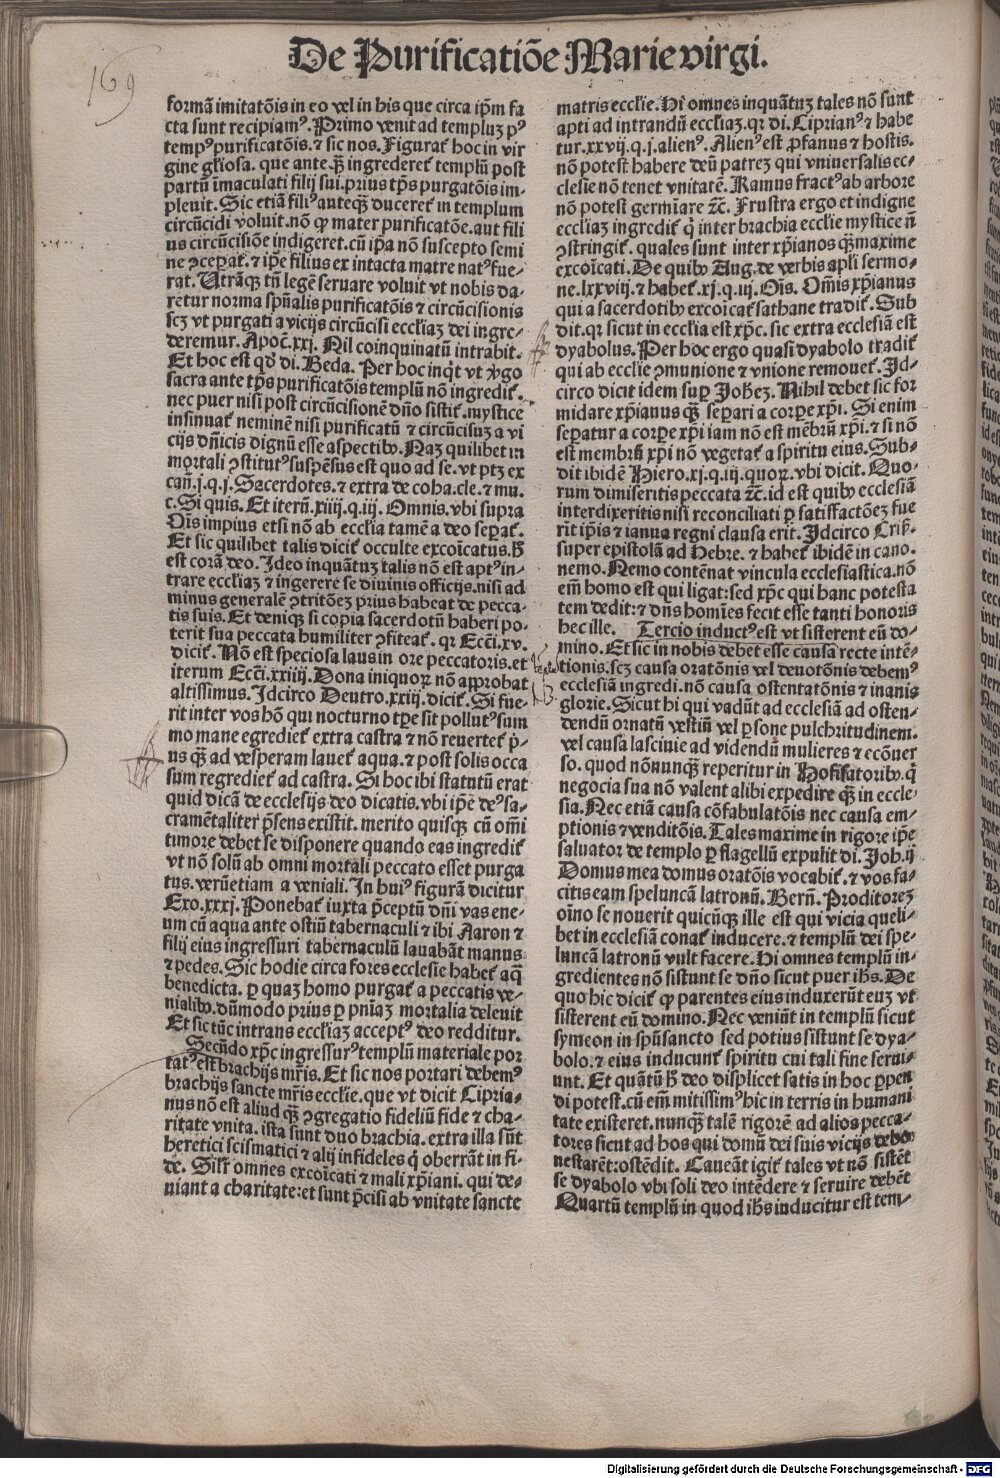 169
De Purificatiōe Marie virgi.
formā imitatōis in eo vel in his que circa ip̄m fa
cta sunt recipiamꝰ. Primo venit ad templuꝫ pꝰ
tempꝰ purificatōis. ⁊ sic nos. Figurat᷑ hoc in vir
gine gl̄iosa. que ante qꝫ̄ ingrederet᷑ templū post
partū īmaculati filij sui. prius tp̄s purgatōis im-
pleuit. Sic etiā filiꝰ anteqꝫ̄ duceret᷑ in templum
circūcidi voluit. nō ꝙ mater purificatōe. aut fili
us circūcisiōe indigeret. cū ip̄a nō suscepto semi
ne ꝯceꝑat. ⁊ ip̄e filius ex intacta matre natꝰ fue-
rat. Utrāqꝫ tn̄ legē seruare voluit vt nobis da-
retur norma sp̄ualis purificatōis ⁊ circūcisionis
scꝫ vt purgati a vicijs circūcisi eccl̄iaꝫ dei ingre-
deremur. Apoc̄. xxj. Nil coinquinatū intrabit.
Et hoc est qd̄ di. Beda. Per hoc inqͥt vt v̓go
sacra ante tp̄s purificatōis templū nō ingredit᷑.
nec puer nisi post circūcisionē dn̄o sistit᷑. mystice
insinuat᷑ neminē nisi purificatū ⁊ circūcisuꝫ a vi
cijs dn̄icis dignū esse aspectibꝰ. Naꝫ quilibet in
mortali ꝯstitutꝰ suspēsus est quo ad se. vt ptꝫ ex
can̄. j. q. j. Sacerdotes. ⁊ extra de coha. cle. ⁊ mu.
c. Si quis. Et iterū. xiiij. q. iij. Omnis. vbi supra
Oīs impius etsi nō ab eccl̄ia tamē a deo seꝑat᷑.
Et sic quilibet talis dicit᷑ occulte excoīcatus. hͦ
est corā deo. Ideo inquātuꝫ talis nō est aptꝰ in-
trare eccl̄iaꝫ ⁊ ingerere se diuinis officijs. nisi ad
minus generalē ꝯtritōeꝫ prius habeat de pecca-
tis suis. Et deniqꝫ si copia sacerdotū haberi po-
terit sua peccata humiliter ꝯfiteat᷑. qꝛ Ecc̄i. xv.
dicit᷑. Nō est speciosa laus in ore peccatoris. et
iterum Ecc̄i. xxiiij. Dona iniquoꝝ nō approbat
altissimus. Idcirco Deutro. xxiij. dicit᷑. Si fue-
rit inter vos hō qui nocturno tꝑe sit pollutꝰ sum
mo mane egrediet᷑ extra castra ⁊ nō reuertet᷑ p̓-
us qꝫ̄ ad vesperam lauet᷑ aqua. ⁊ post solis occa
sum regrediet᷑ ad castra. Si hoc ibi statutū erat
quid dicā de ecclesijs deo dicatis. vbi ip̄e deꝰ sa-
cramētaliter p̄sens existit. merito quisqꝫ cū om̄i
timore debet se disponere quando eas ingredit᷑
vt nō solū ab omni mortali peccato esset purga
tus. verūetiam a veniali. In huiꝰ figurā dicitur
Exo. xxxj. Ponebat᷑ iuxta p̄ceptū dn̄i vas ene-
um cū aqua ante ostiū tabernaculi ⁊ ibi Aaron ⁊
filij eius ingressuri tabernaculū lauabāt manus
⁊ pedes. Sic hodie circa fores ecclesie habet᷑ aqͣ
benedicta. ꝑ quaꝫ homo purgat᷑ a peccatis ve-
nialibꝰ. dūmodo prius ꝑ pn̄iaꝫ mortalia deleuit
Et sic tūc intrans eccl̄iaꝫ acceptꝰ deo redditur.
Secūdo xp̄c ingressurꝰ templū materiale por
tatꝰ est brachijs mr̄is. Et sic nos portari debemꝰ
brachijs sancte mr̄is eccl̄ie. que vt dicit Cipria-
nus nō est aliud qꝫ̄ ꝯgregatio fideliū fide ⁊ cha-
ritate vnita. ista sunt duo brachia. extra illa sūt
heretici scismatici ⁊ alij infideles qͥ oberrāt in fi-
de. Silr̄ omnes excoīcati ⁊ mali xp̄iani. qui de-
uiant a charitate: et sunt p̄cisi ab vnitate sancte
matris eccl̄ie. Hi omnes inquātuꝫ tales nō sunt
apti ad intrandū eccl̄iaꝫ. qꝛ di. Ciprianꝰ ⁊ habe
tur. xxvij. q. j. alienꝰ. Alienꝰ est ꝓfanus ⁊ hostis.
nō potest habere deū patreꝫ qui vniuersalis ec-
clesie nō tenet vnitatē. Ramus fractꝰ ab arbore
nō potest germīare ⁊c̄. Frustra ergo et indigne
eccl̄iaꝫ ingredit᷑ qͥ inter brachia eccl̄ie mystice n̄
ꝯstringit᷑. quales sunt inter xp̄ianos qꝫ̄maxime
excoīcati. De quibꝰ Aug. de verbis apl̄i sermo-
ne. lxxviij. ⁊ habet᷑. xj. q. iij. Oīs. Om̄is xp̄ianus
qui a sacerdotibꝰ excoīcat᷑ sathane tradit᷑. Sub
dit. qꝛ sicut in eccl̄ia est xp̄c. sic extra ecclesiā est
dyabolus. Per hoc ergo quasi dyabolo tradit᷑
qui ab eccl̄ie ꝯmunione ⁊ vnione remouet᷑. Id-
circo dicit idem suꝑ Joheꝫ. Nihil debet sic for
midare xp̄ianus qꝫ̄ seꝑari a corꝑe xp̄i. Si enim
seꝑatur a corꝑe xp̄i iam nō est mēbrū xp̄i. ⁊ si nō
est membrū xp̄i nō vegetat᷑ a spiritu eius. Sub-
dit ibidē Hiero. xj. q. iij. quoꝝ. vbi dicit. Quo-
rum dimiseritis peccata ⁊c̄. id est quibꝰ ecclesiā
interdixeritis nisi reconciliati ꝑ satisfactōeꝫ fue
rīt ip̄is ⁊ ianua regni clausa erit. Idcirco Cris̄.
super epistolā ad Hebre. ⁊ habet᷑ ibidē in cano.
nemo. Nemo contēnat vincula ecclesiastica. nō
em̄ homo est qui ligat: sed xp̄c qui hanc potesta
tem dedit: ⁊ dn̄s homīes fecit esse tanti honoris
hec ille. Tercio inductꝰ est vt sisterent eū do-
mino. Et sic in nobis debet esse causa recte intē-
tionis. scꝫ causa oratōnis vel deuotōnis debemꝰ
ecclesiā ingredi. nō causa ostentatōnis ⁊ inanis
glorie. Sicut hi qui vadūt ad ecclesiā ad osten-
dendū ornatū vestiū vel ꝑsone pulchritudinem.
vel causa lasciuie ad videndū mulieres ⁊ ecōuer
so. quod nōnunqꝫ̄ reperitur in Hofisatoribꝰ. qͥ
negocia sua nō valent alibi expedire qꝫ̄ in eccle-
sia. Nec etiā causa cōfabulatōis nec causa em-
ptionis ⁊ venditōis. Tales maxime in rigore ip̄e
saluator de templo ꝑ flagellū expulit di. Joh. ij
Domus mea domus oratōis vocabit᷑. ⁊ vos fa-
citis eam speluncā latronū. Bern̄. Proditoreꝫ
oīno se nouerit quicūqꝫ ille est qui vicia queli-
bet in ecclesiā conat᷑ inducere. ⁊ templū dei spe-
luncā latronū vult facere. Hi omnes templū in-
gredientes nō sistunt se dn̄o sicut puer ih̄s. De
quo hic dicit᷑ ꝙ parentes eius induxerūt euꝫ vt
sisterent eū domino. Nec veniūt in templū sicut
symeon in sp̄usancto sed potius sistunt se dya-
bolo. ⁊ eius inducunt᷑ spiritu cui tali fine serui-
unt. Et quātū hͦ deo displicet satis in hoc ꝑpen
di potest. cū em̄ mitissimꝰ hic in terris in humani
tate existeret. nunqꝫ̄ talē rigorē ad alios pecca-
tores sicut ad hos qui domū dei suis vicijs deho
nestarēt: ostēdit. Caueāt igit᷑ tales vt nō sistēt
se dyabolo vbi soli deo intēdere ⁊ seruire debēt
Quartū templū in quod ih̄s inducitur est tem-
Digitalisierung gefördert durch die Deutsche Forschungsgemeinschaft - DFG